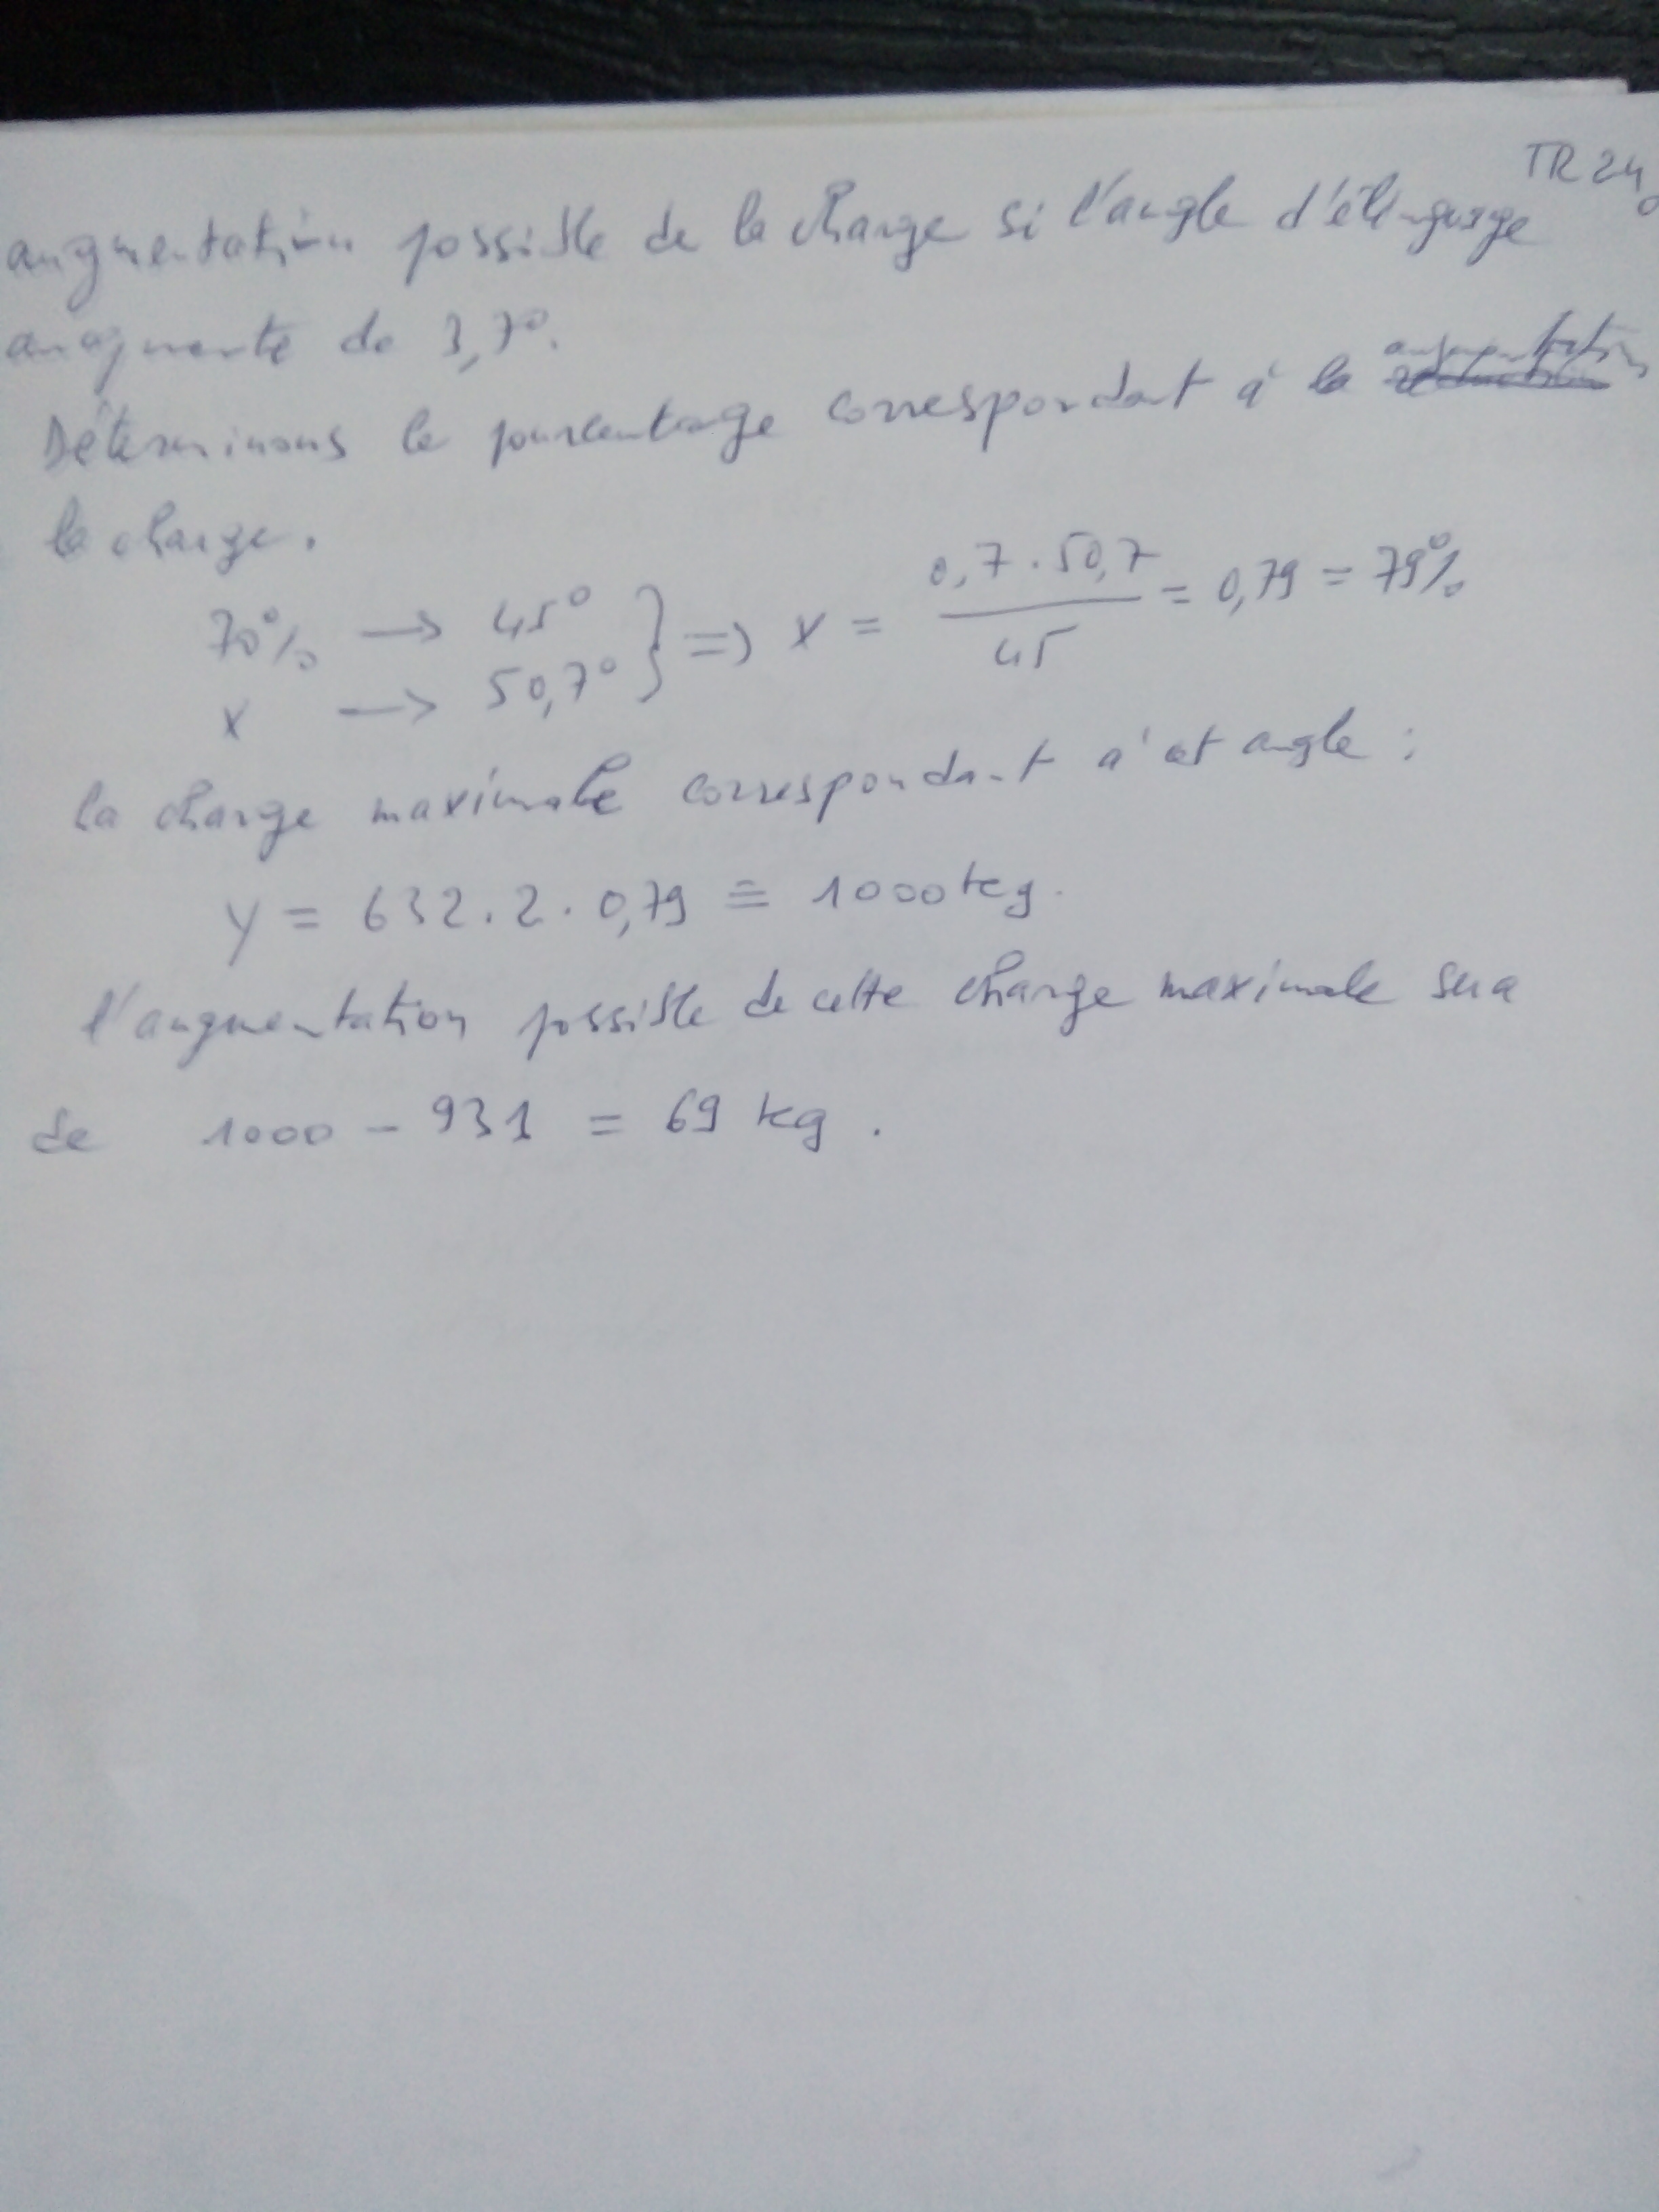 TR 24
augmentation possible de la charge si l'angle d'élinguage
augmente de 3,7°.
Déterminons le pourcentage correspondant à la augmentation
la charge.
70% → 45° } => x = 0,7 . 50,7 / 45 = 0,79 = 79%
x → 50,7°
la charge maximale correspondant à cet angle :
y = 632 . 2 . 0,79 ≅ 1000 kg.
l'augmentation possible de cette charge maximale sera
de 1000 - 931 = 69 kg.